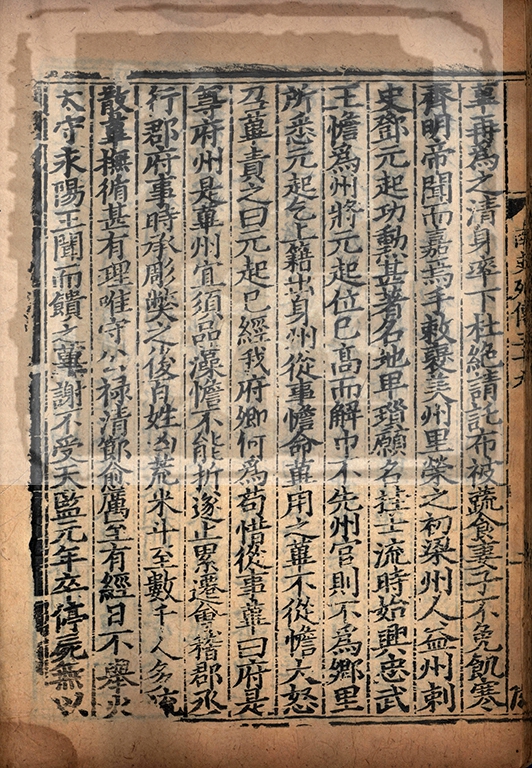 蓽再爲之清身率下杜絕請託布被蔬食妻子不免飢寒
齊明帝聞而嘉焉手敕襃美州里榮之初梁州人益州刺
史鄧元起功勳甚著名地卑瑣願名挂士流時始興忠武
王憺爲州將元起位已高而解巾不先州官則不爲鄉里
所悉元起乞上籍出身州從事憺命蓽用之蓽不從憺大怒
召蓽責之曰元起已經我府卿何爲苟惜從事蓽曰府是
尊府州是蓽州宜須品藻憺不能折遂止累遷會稽郡丞
行郡府事時承彫弊之後百姓凶荒米斗至數千人多流
散蓽撫循甚有理唯守公祿清節愈厲至有經日不舉火
太守永陽王聞而饋之蓽謝不受天監元年卒停屍無以